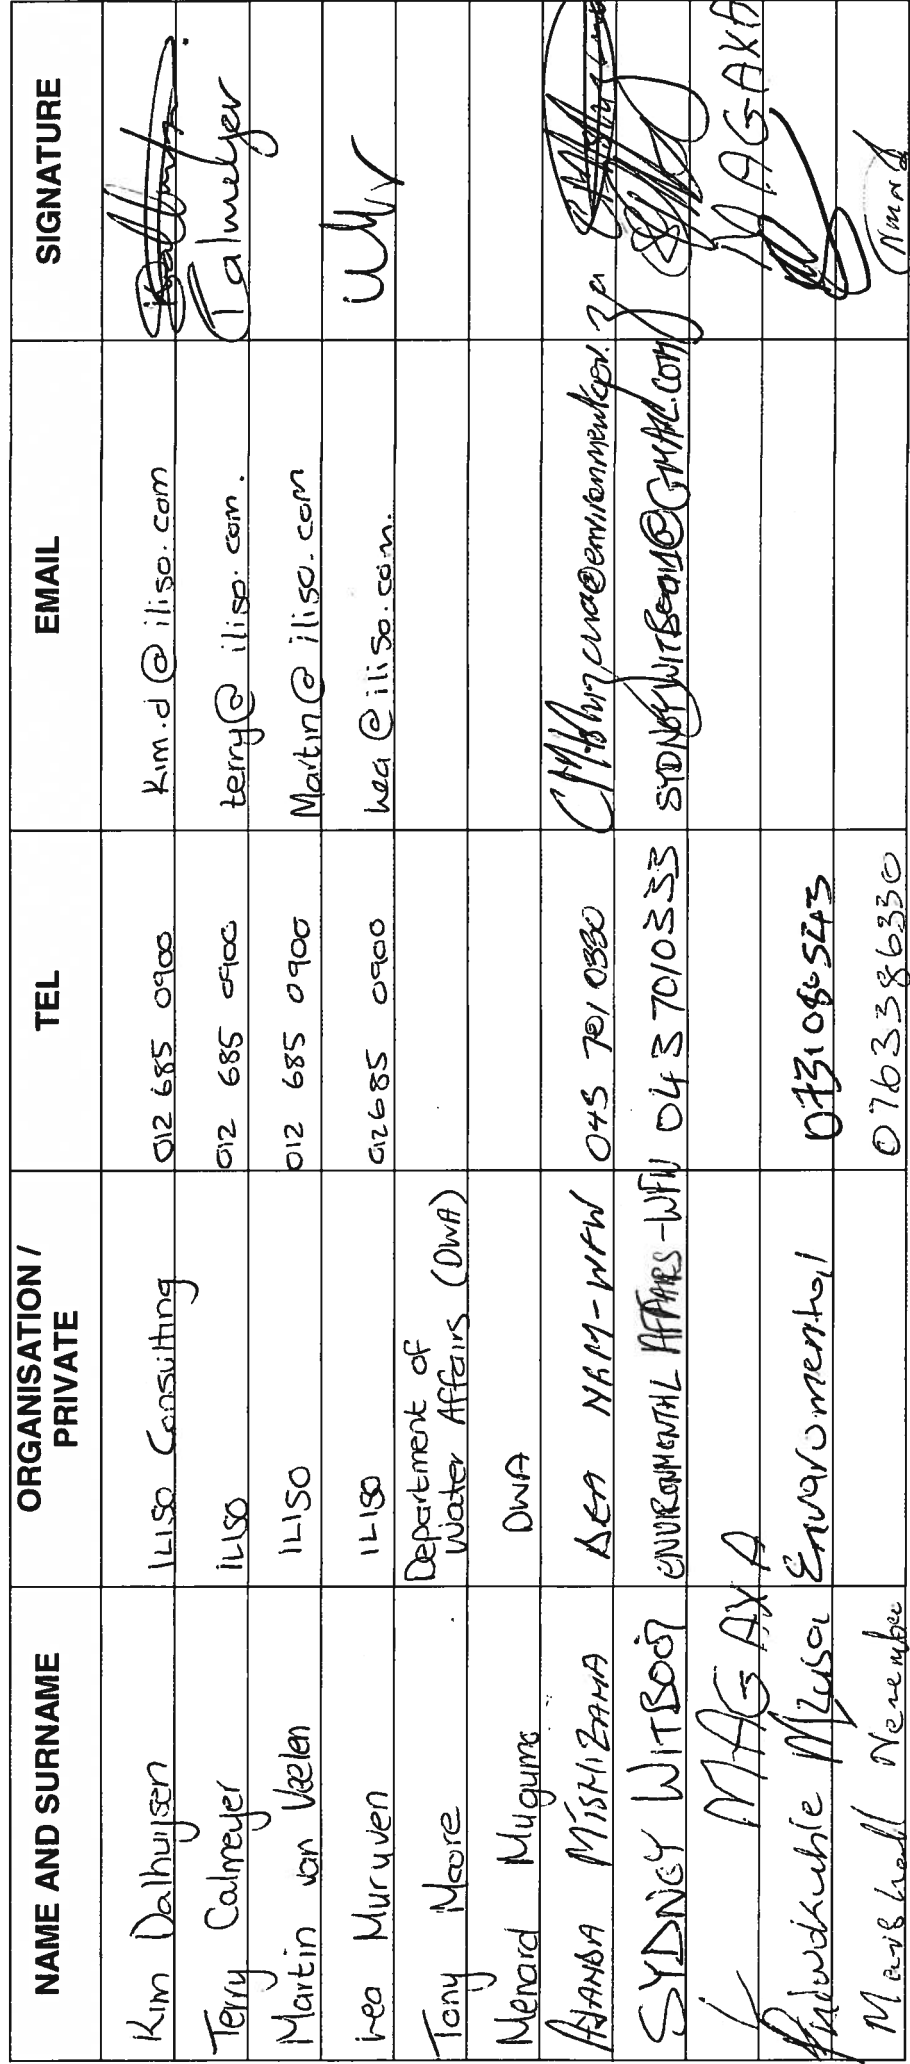 NAME AND SURNAME ORGANISATION / PRIVATE TEL EMAIL SIGNATURE
Kim Dalhuijsen ILISO Consulting 012 685 0900 Kim.d@iliso.com
Terry Calmeyer ILISO 012 685 0900 terry@iliso.com. TCalmeyer
Martin van Veelen ILISO 012 685 0900 Martin@iliso.com
Lea Muruven ILISO 012685 0900 lea@iliso.com.
Tony Moore Department of Water Affairs (DWA)
Menard Mugumo DWA
DEA NRM-WFW 043 701 0330
SYDNEY WITBOOI ENVIRONMENTAL AFFAIRS-WFW 043 7010333 SYDNEYWITBOOI@GMAIL.COM
K MAGAXA MAGAXA
Mzuba Envaromental 0731086543
Marshall 0763386330